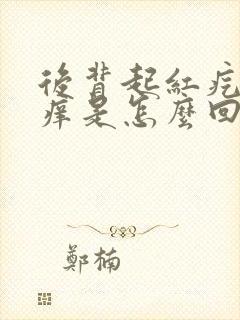 後背起紅疙
癢是怎麼回
鄭楠